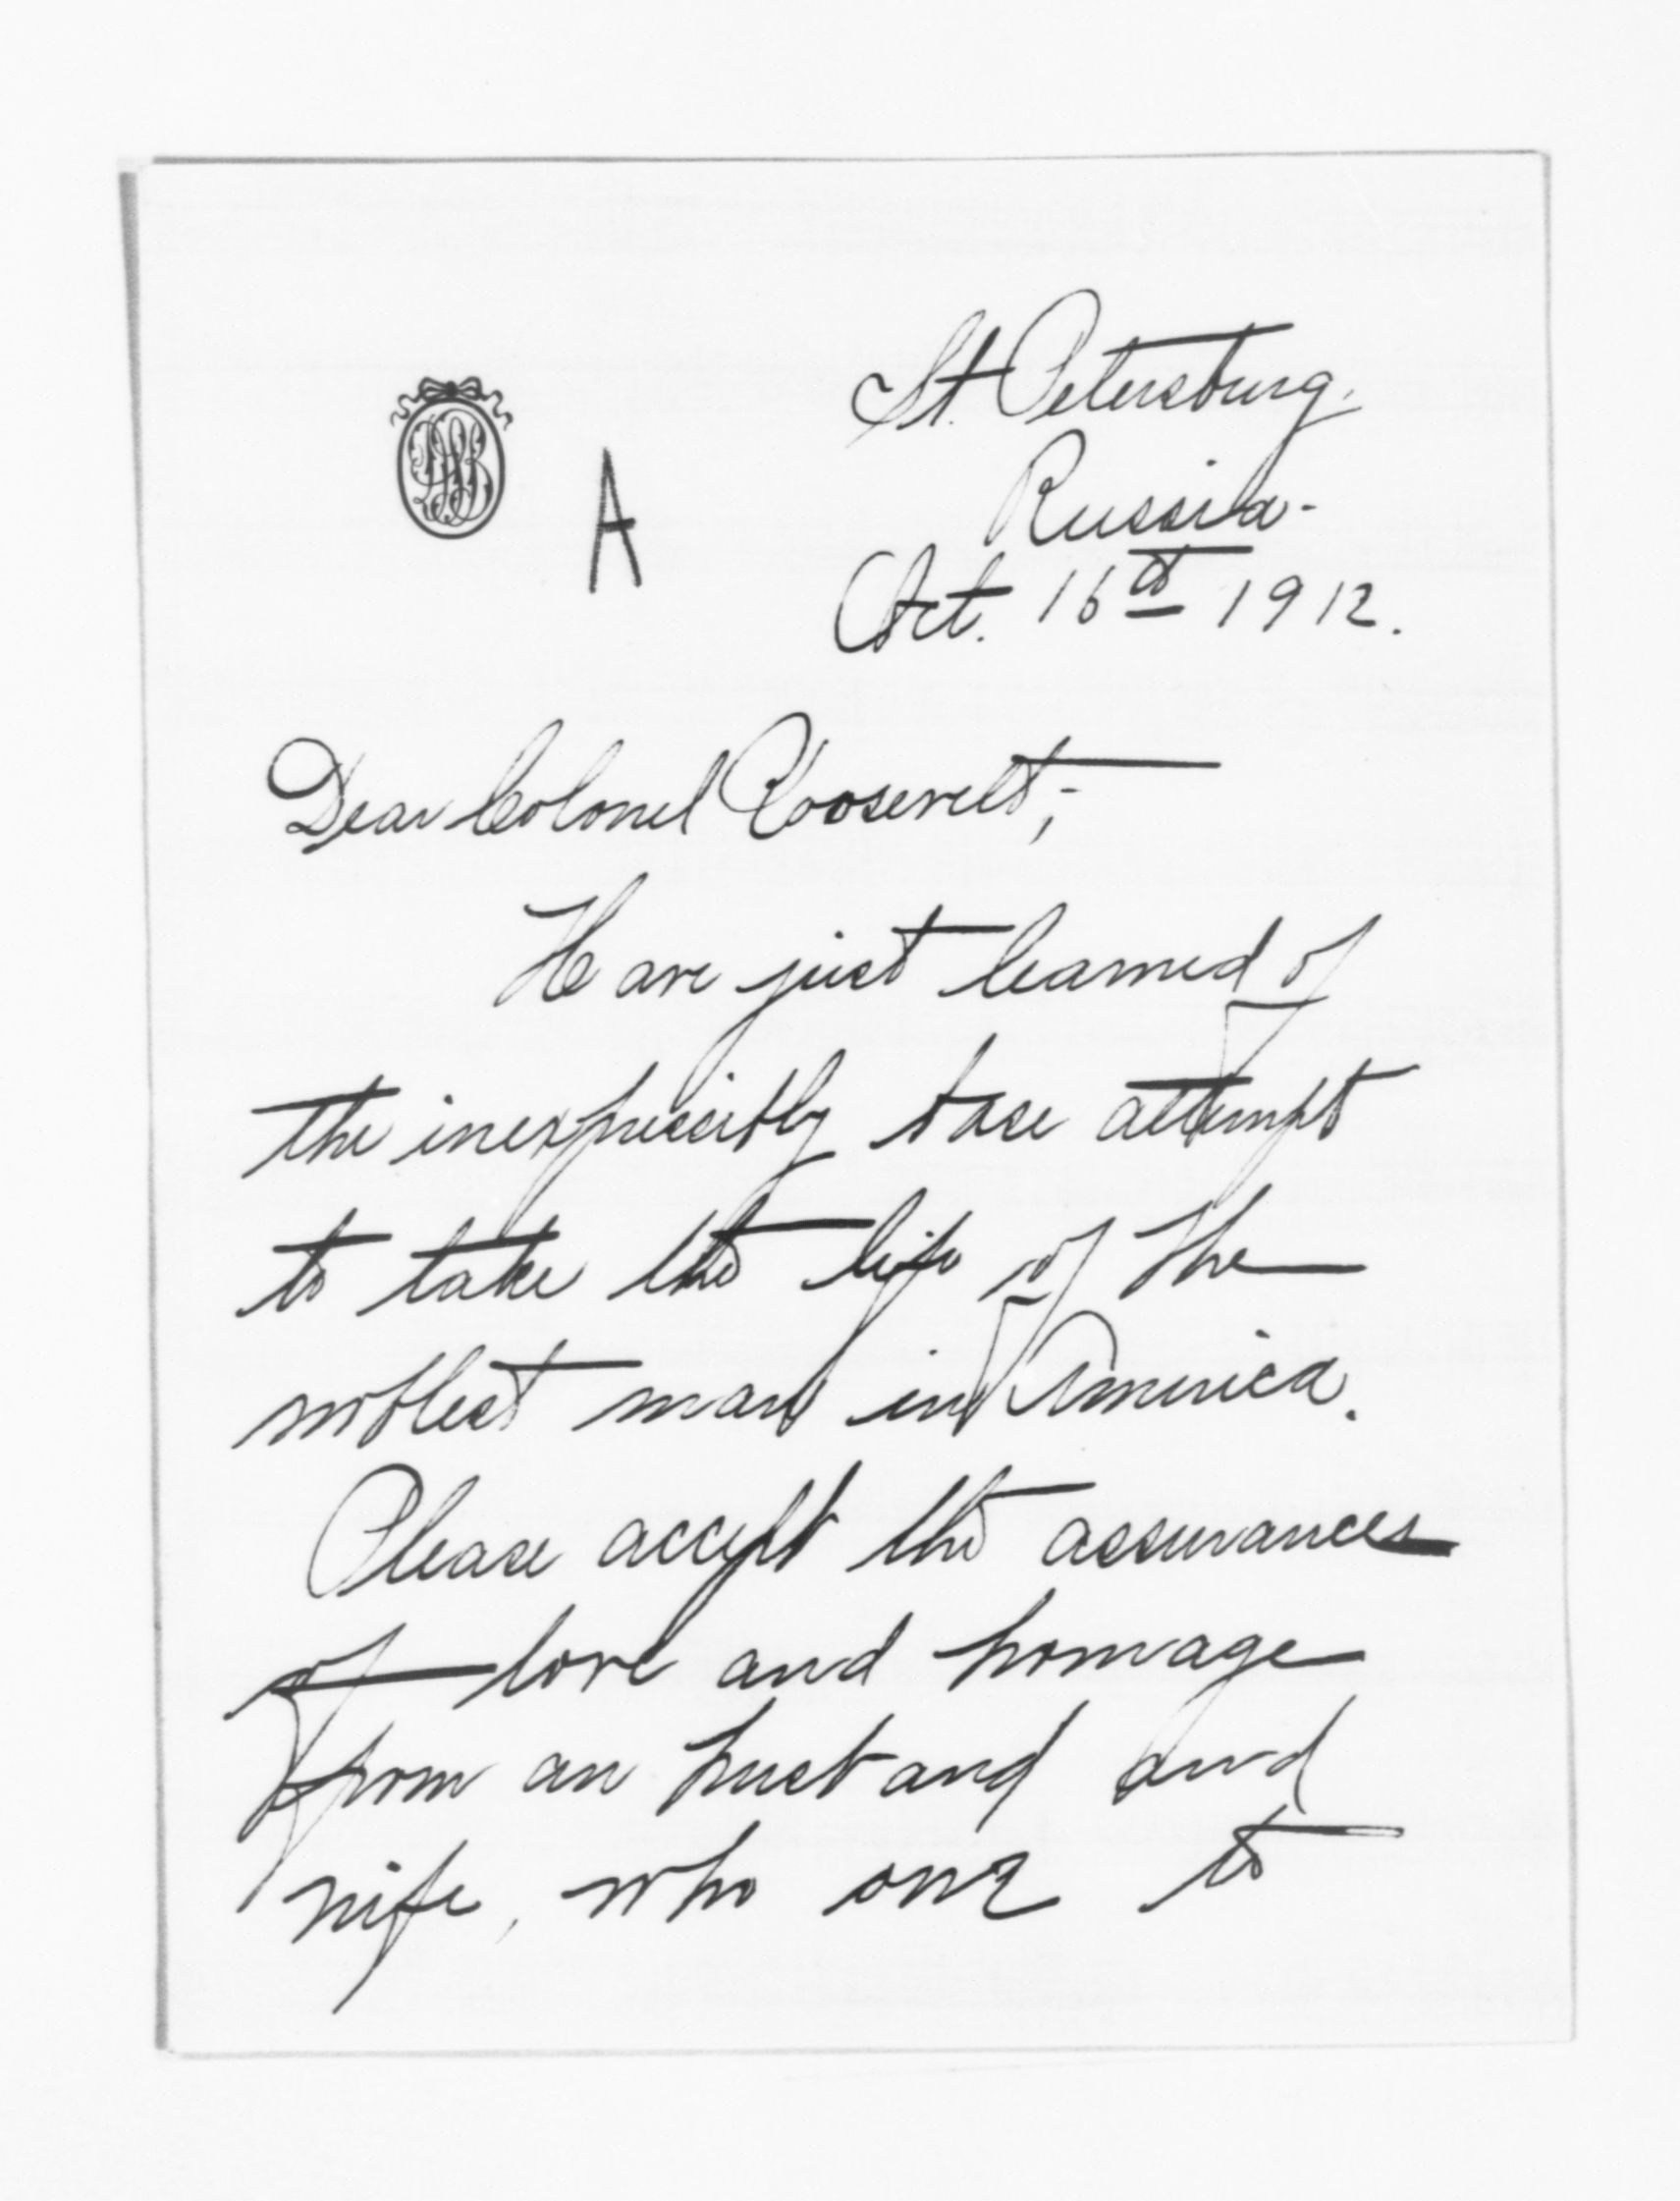 St. Petersburg.
Russia-
A
Oct. 16th 1912.
Dear Colonel Roosevelt;-
Have just learned of
the inexpressibly base attempt
to take the life of the
noblest man in America.
Please accept the assurances
of love and homage
from an husband and
wife, who owe to